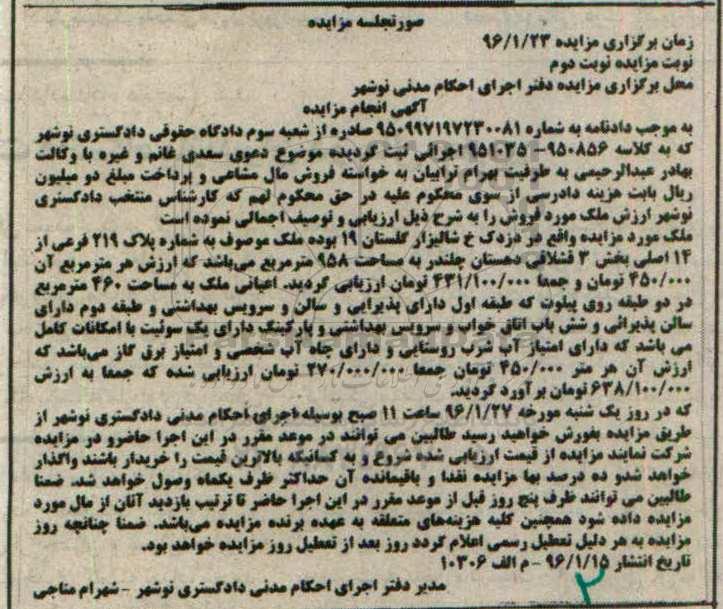 صورتجلسه مزایده
زمان برگزاری مزایده ۹۶/۱/۲۳
نوبت مزایده نوبت دوم
محل برگزاری مزایده دفتر اجرای احکام مدنی نوشهر
آگهی انجام مزایده
به موجب دادنامه به شماره ۹۵۰۹۹۷۱۹۷۲۳۰۰۸۱ صادره از شعبه سوم دادگاه حقوقی دادگستری نوشهر
که به کلاسه ۹۵۰۸۵۶- ۹۵۱۰۳۵ اجرائی ثبت گردیده موضوع دعوی سعدی غانم و غیره با وکالت
بهادر عبدالرحیمی به طرفیت بهرام ترابیان به خواسته فروش مال مشاعی و پرداخت مبلغ دو میلیون
ریال بابت هزینه دادرسی از سوی محکوم علیه در حق محکوم لهم که کارشناس منتخب دادگستری
نوشهر ارزش ملک مورد فروش را به شرح ذیل ارزیابی و توصیف اجمالی نموده است
ملک مورد مزایده واقع در دزدک خ شالیزار گلستان ۱۹ بوده ملک موصوف به شماره پلاک ۲۱۹ فرعی از
۱۴ اصلی بخش ۳ قشلاقی دهستان چلندر به مساحت ۹۵۸ مترمربع می‌باشد که ارزش هر مترمربع آن
۴۵۰/۰۰۰ تومان و جمعا ۴۳۱/۱۰۰/۰۰۰ تومان ارزیابی گردید. اعیانی ملک به مساحت ۴۶۰ مترمربع
در دو طبقه روی پیلوت که طبقه اول دارای پذیرایی و سالن و سرویس بهداشتی و طبقه دوم دارای
سالن پذیرائی و شش باب اتاق خواب و سرویس بهداشتی و پارکینگ دارای یک سوئیت با امکانات کامل
می باشد که دارای امتیاز آب شرب روستایی و دارای چاه آب شخصی و امتیاز برق گاز می‌باشد که
ارزش آن هر متر ۴۵۰/۰۰۰ تومان جمعا ۲۷۰/۰۰۰/۰۰۰ تومان ارزیابی شده که جمعا به ارزش
۶۳۸/۱۰۰/۰۰۰ تومان برآورد گردید.
که در روز یک شنبه مورخه ۹۶/۱/۲۷ ساعت ۱۱ صبح بوسیله اجرای احکام مدنی دادگستری نوشهر از
طریق مزایده بفورش خواهید رسید طالبین می توانند در موعد مقرر در این اجرا حاضرو در مزایده
شرکت نمایند مزایده از قیمت ارزیابی شده شروع و به کسانیکه بالاترین قیمت را خریدار باشند واگذار
خواهد شدو ده درصد بها مزایده نقدا و باقیمانده آن حداکثر ظرف یکماه وصول خواهد شد. ضمنا
طالبین می توانند ظرف پنج روز قبل از موعد مقرر در این اجرا حاضر تا ترتیب بازدید آنان از مال مورد
مزایده داده شود همچنین کلیه هزینه‌های متعلقه به عهده برنده مزایده می‌باشد. ضمنا چنانچه روز
مزایده به هر دلیل تعطیل رسمی اعلام گردد روز بعد از تعطیل روز مزایده خواهد بود.
تاریخ انتشار ۹۶/۱/۱۵ - م الف ۱۰۳۰۶
مدیر دفتر اجرای احکام مدنی دادگستری نوشهر - شهرام متاجی